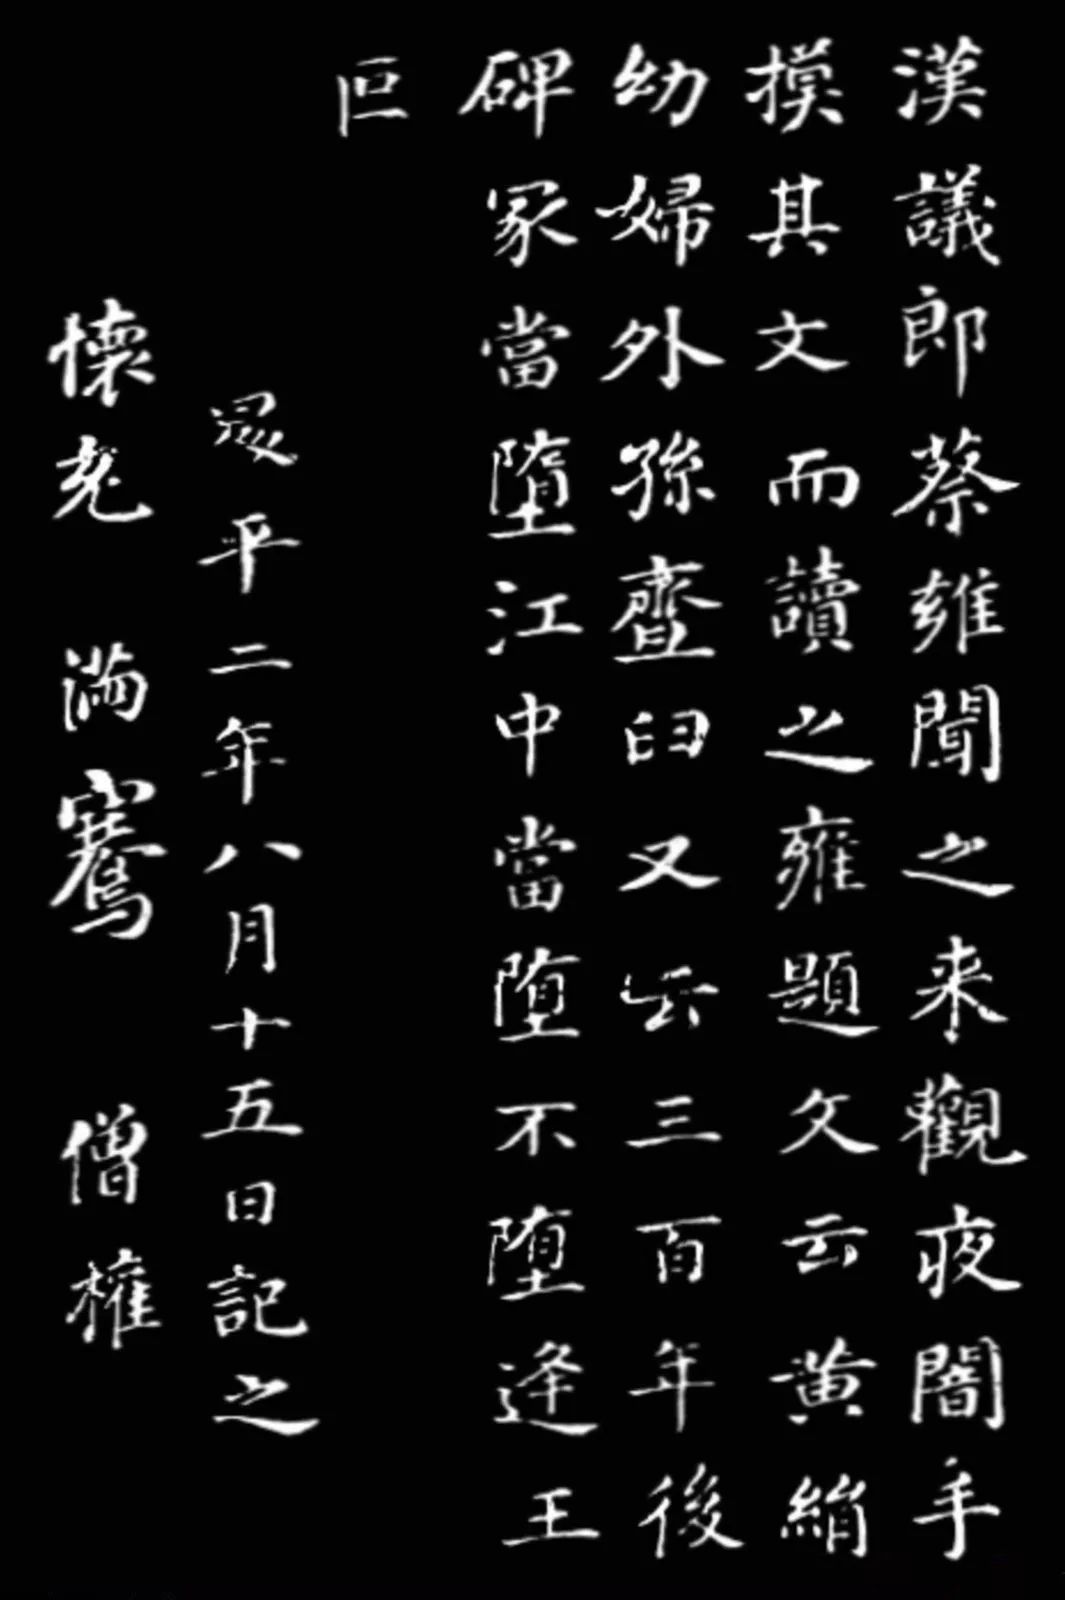 漢議郎蔡雍聞之来觀夜闇手
摸其文而讀之雍題文云黄絹
幼婦外孫虀臼又云三百年後
碑冢當墮江中當墮不墮逢王
叵
昇平二年八月十五日記之
懷充 滿騫 僧權